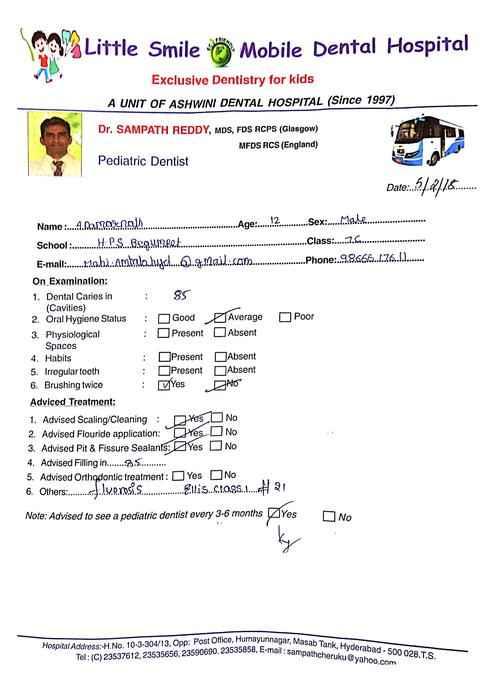 Little Smile Mobile Dental Hospital
ECO FRIENDLY
Exclusive Dentistry for kids
A UNIT OF ASHWINI DENTAL HOSPITAL (Since 1997)
Dr. SAMPATH REDDY, MDS, FDS RCPS (Glasgow)
MFDS RCS (England)
Pediatric Dentist
Date: 5/2/18
Name: Age: 12 Sex: Male
School: H.P.S Begumpet Class: 7C
E-mail: @gmail.com Phone: 98666 176 11
On Examination:
1. Dental Caries in : 85
(Cavities)
2. Oral Hygiene Status : Good Average Poor
3. Physiological : Present Absent
Spaces
4. Habits : Present Absent
5. Irregular teeth : Present Absent
6. Brushing twice : Yes No
Adviced Treatment:
1. Advised Scaling/Cleaning : Yes No
2. Advised Flouride application: Yes No
3. Advised Pit & Fissure Sealants: Yes No
4. Advised Filling in 85
5. Advised Orthodontic treatment : Yes No
6. Others: fluorosis Ellis class I # 21
Note: Advised to see a pediatric dentist every 3-6 months Yes No
Hospital Address:-H.No. 10-3-304/13, Opp: Post Office, Humayunnagar, Masab Tank, Hyderabad - 500 028,T.S.
Tel : (C) 23537612, 23535656, 23590690, 23535858, E-mail : sampathcheruku@yahoo.com